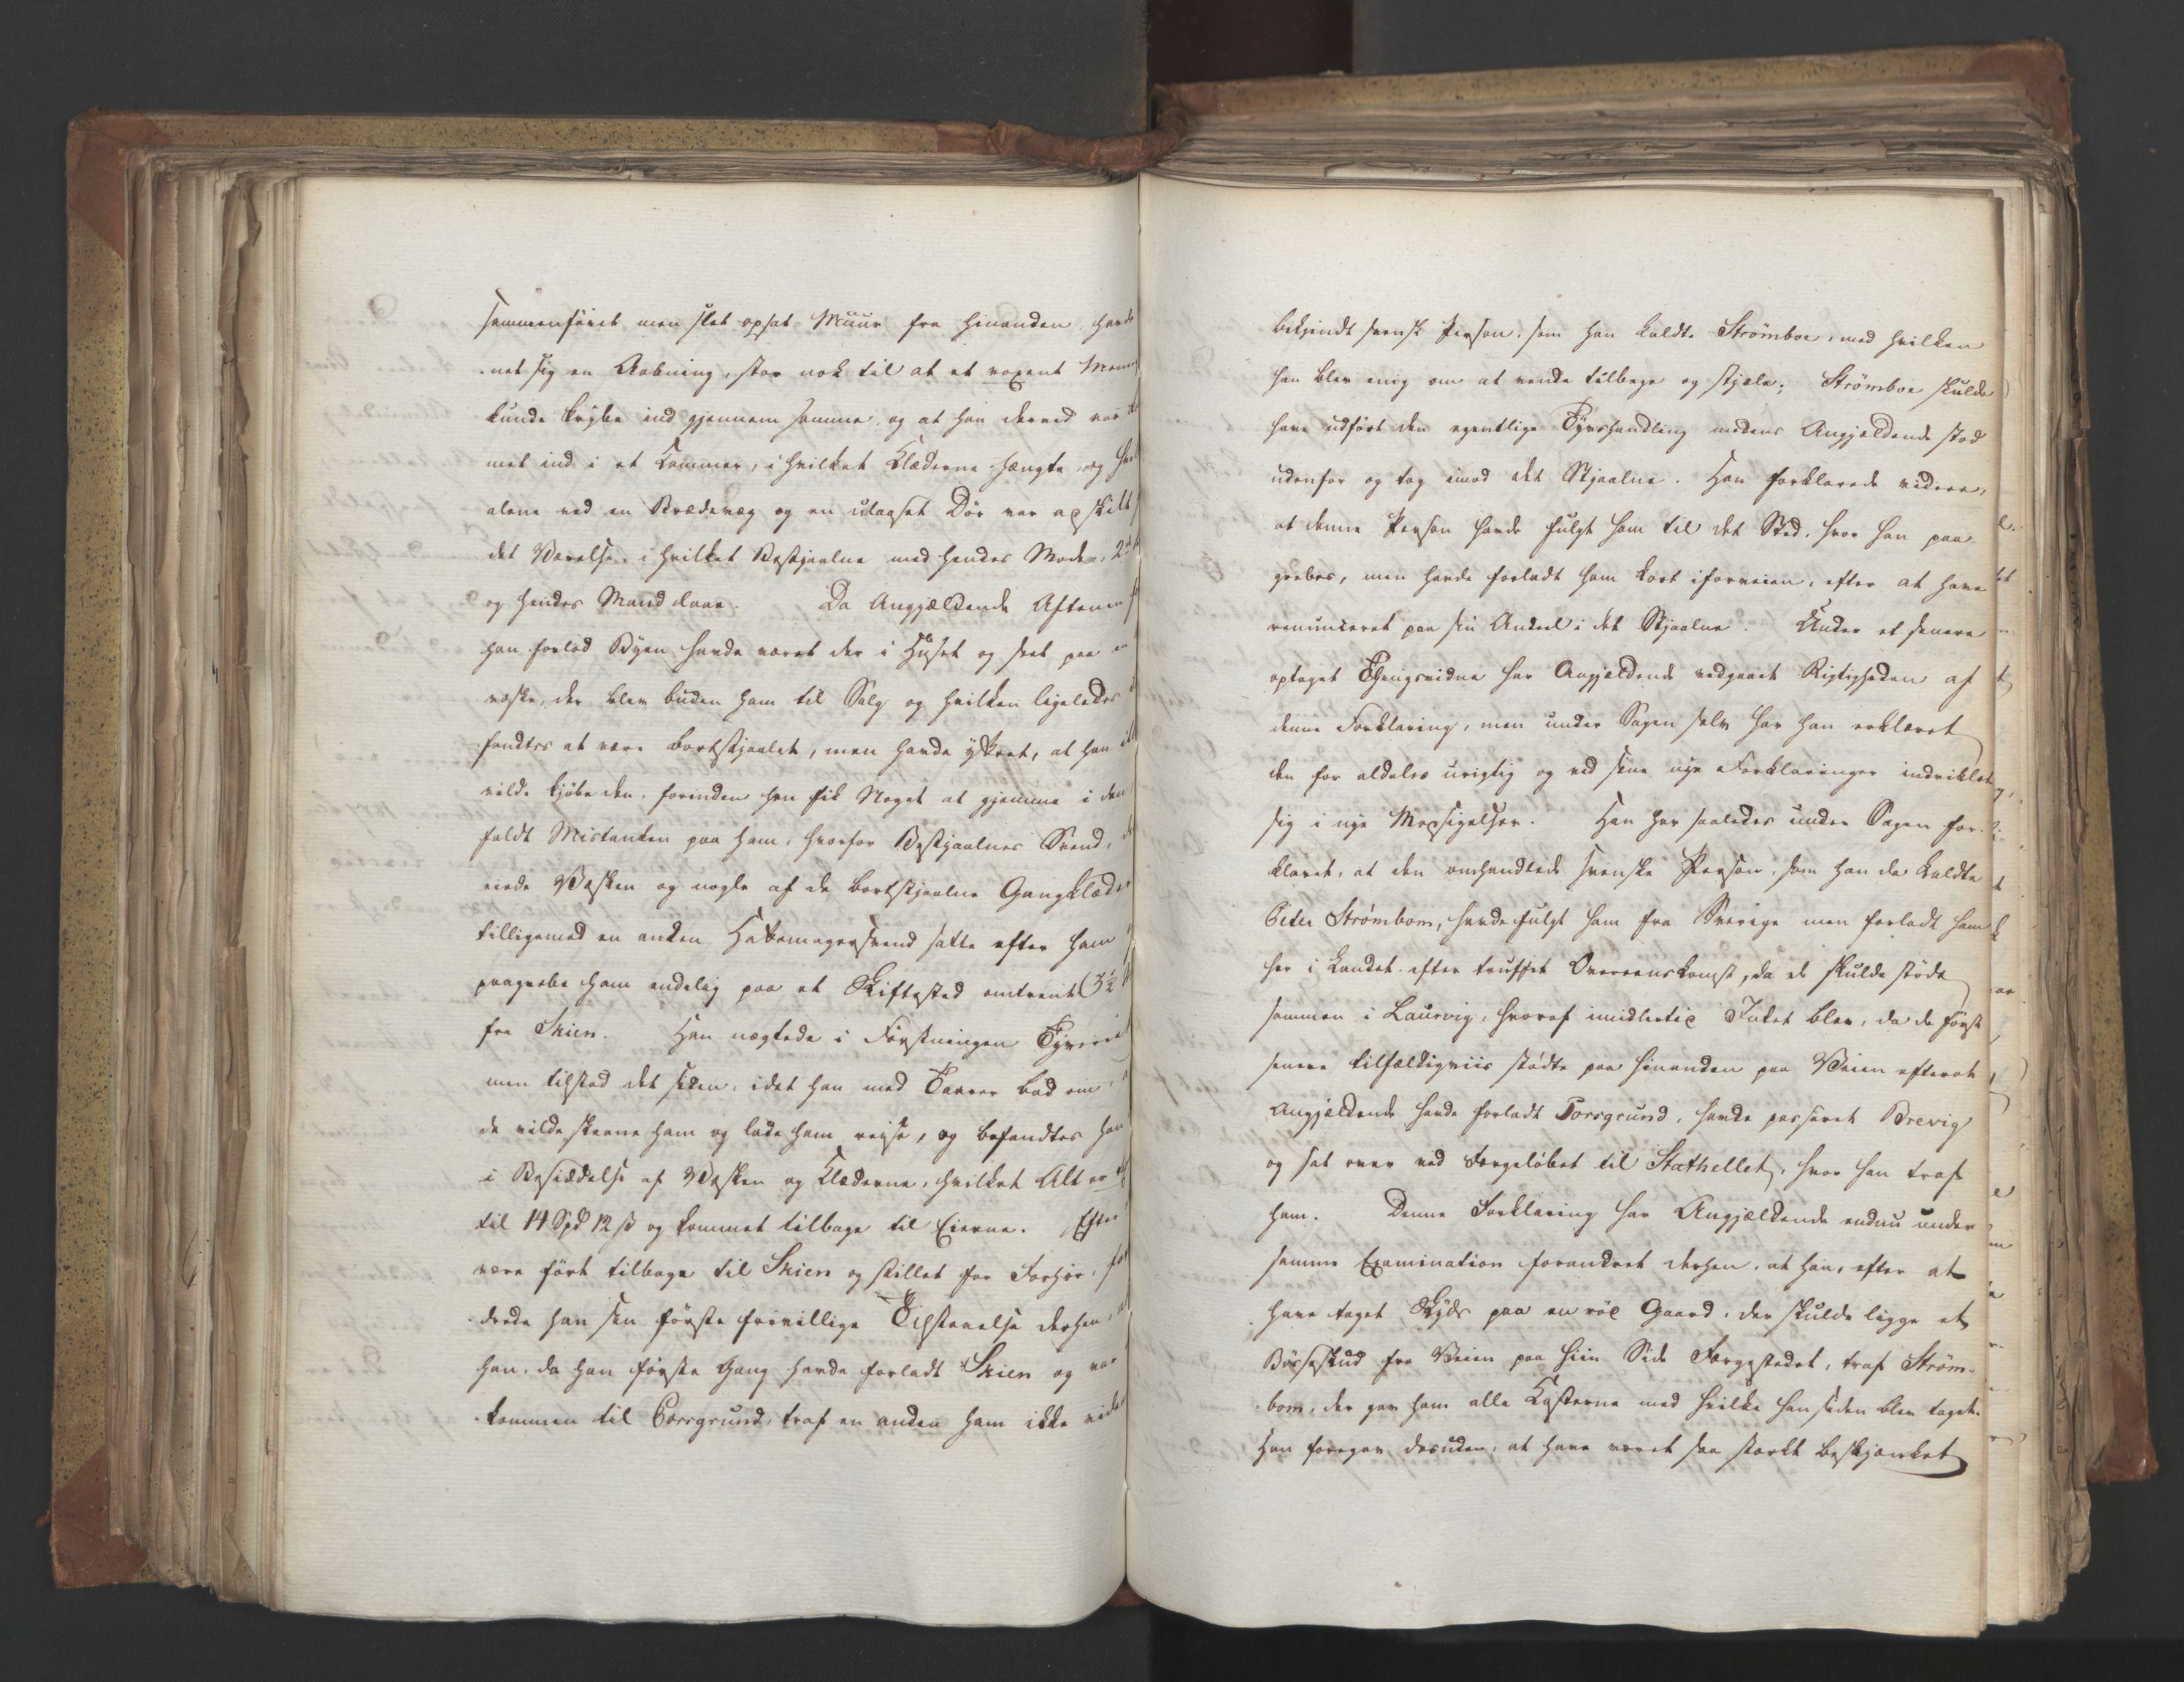 sammenføiet men slet opsat Muur fra hinanden, havde
net sig en Aabning, stor nok til at et voxent Menne
kunde krybe ind gjennem samme, og at han derved var
met ind i et Kammer, i hvilket Klæderne hængte, og
alene ved en Brædevæg og en ulaaset Dør var adskilt
det Værelse, i hvilket Bestjaalne med hendes Moder, 2de
og hendes Mand laae. Da Angjældende Aftenen
han forlod Byen havde været der i Huset og seet paa en
væske, der blev buden ham til Salg og hvilken ligeledes
fandtes at være bortstjaalet, men havde yttret, at han ikke
vilde kjøbe den, forinden han fik Noget at gjemme i den
faldt Mistanken paa ham, hvorfor Bestjaalnes Svend,
eiede Væsken og nogle af de bortstjaalne Gangklæder
tilligemed en anden Hattemagersvend satte efter ham
paagrebe ham endelig paa et Skiftested omtrent 3½
fra Skien. Han nægtede i Førstningen Tyveriet
men tilstod det siden, idet han med Taarer bad om,
de vilde skaane ham og lade ham reise, og befandtes han
i Besiddelse af Væsken og Klæderne, hvilket Alt er
til 14 Spd 12 ß og kommet tilbage til Eierne. Efter
være ført tilbage til Skien og stillet for Forhør, for
drede han sin første frivillige Tilstaaelse derhen,
han, da han første Gang havde forladt Skien og var
kommen til Porsgrund, traf en anden ham ikke vider
bekjendt svensk Person, som han kaldte Strømboe, med hvilken
han blev enig om at vende tilbage og stjæle; Strømboe skulde
have udført den egentlige Tyvshandling medens Angjældende stod
udenfor og tog imod det Stjaalne. Han forklarede videre,
at denne Person havde fulgt ham til det Sted, hvor han paa
grebes, men havde forladt ham kort iforveien, efter at have
renunceret paa sin Andeel i det Stjaalne. Under et senere
optaget Thingsvidne har Angjældende vedgaaet Rigtigheden af
denne Forklaring, men under Sagen selv har han erklæret
den for aldeles urigtig og ved sine nye Forklaringer indviklet
sig i nye Modsigelser. Han har saaledes under Sagen for
klaret, at den omhandlede svenske Person, som han da kaldte
Peter Strømbom, havde fulgt ham fra Sverige men forladt ham
her i Landet efter truffet Overeenskomst, da de skulde støde
sammen i Laurvig, hvoraf imidlertid Intet blev, da de først
senere tilfældigviis stødte paa hinanden paa Veien efterat
Angjældende havde forladt Porsgrund, havde passeret Brevig
og sat over ved Færgeløbet til Stathellet, hvor han traf
ham. Denne Forklaring har Angjældende endnu under
samme Examination forandret derhen, at han, efter at
have taget Skyds paa en rød Gaard, der skulde ligge et
Bøsseskud fra Veien paa hiin Side Færgestedet, traf Strøm-
bom, der gav ham alle Kosterne med hvilke han siden blev taget.
Han foregav desuden, at have været saa stærkt beskjænket